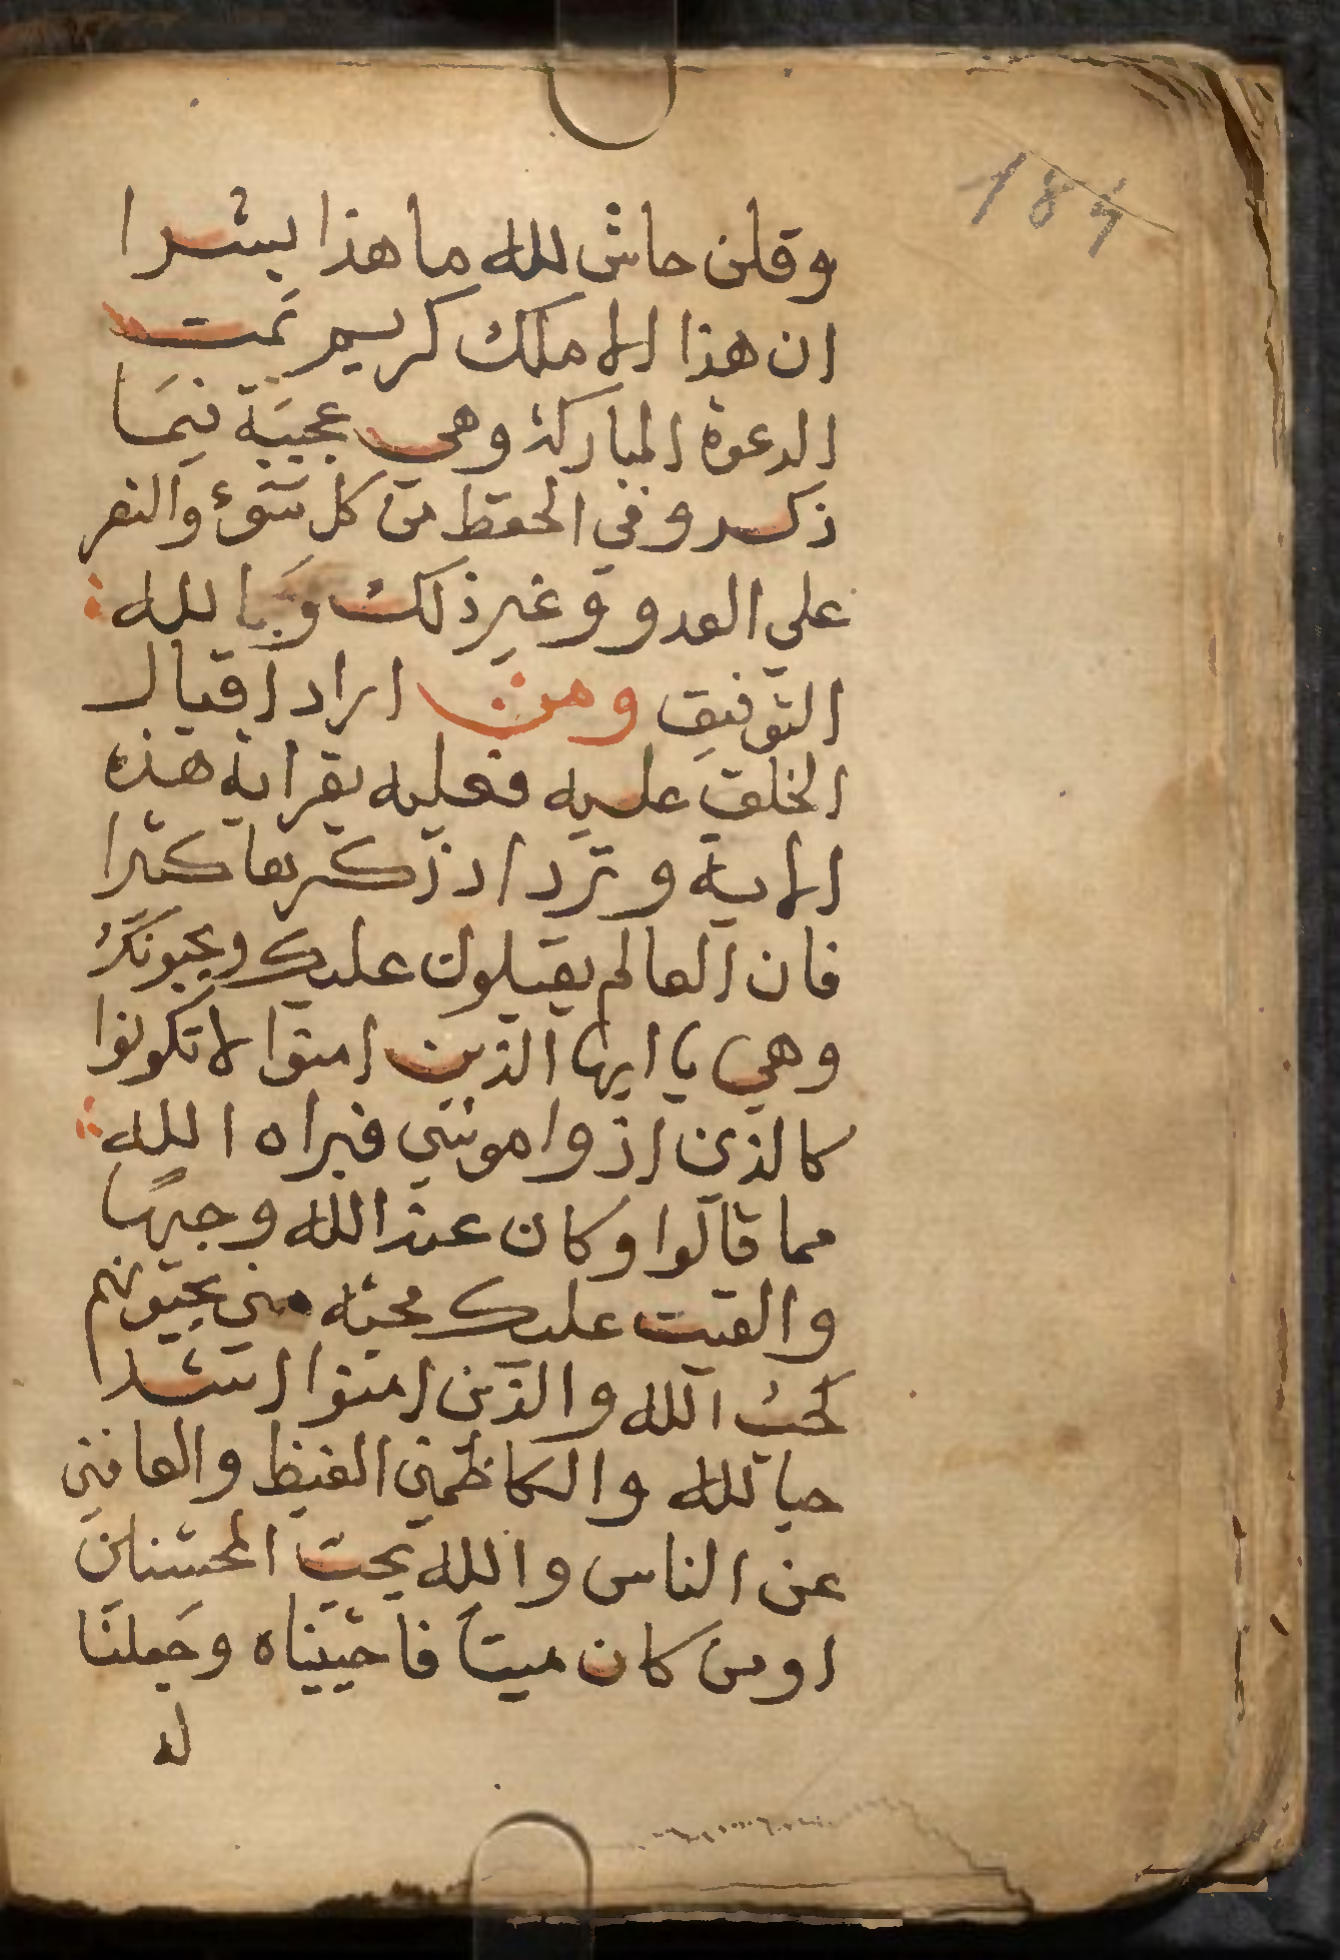 184
وقلن حاش لله ما هذا بشرا
ان هذا الا ملك كريم تمت
الدعوة المباركة وهي عجيبة فيما
ذكر وفي الحفظ من كل سوء والنصر
علي العدو وغير ذلك وبالله
التوفيق ومن اراد اقبال
الخلق عليه فعليه بقراية هذه
الاية وترداد ذكريها كثيرا
فان العالم يقبلون عليك ويحبونك
وهي يا ايها الذين امنوا لا تكونوا
كالذين اذوا موسي فبراه الله
مما قالوا وكان عند الله وجيها
والقيت عليك محبه مني يحبونهم
كحب الله والذين امنوا اشد
حبا لله والكاظمين الغيظ والعافين
عن الناس والله يحب المحسنين
اومن كان ميتا فاحييناه وجعلنا
له